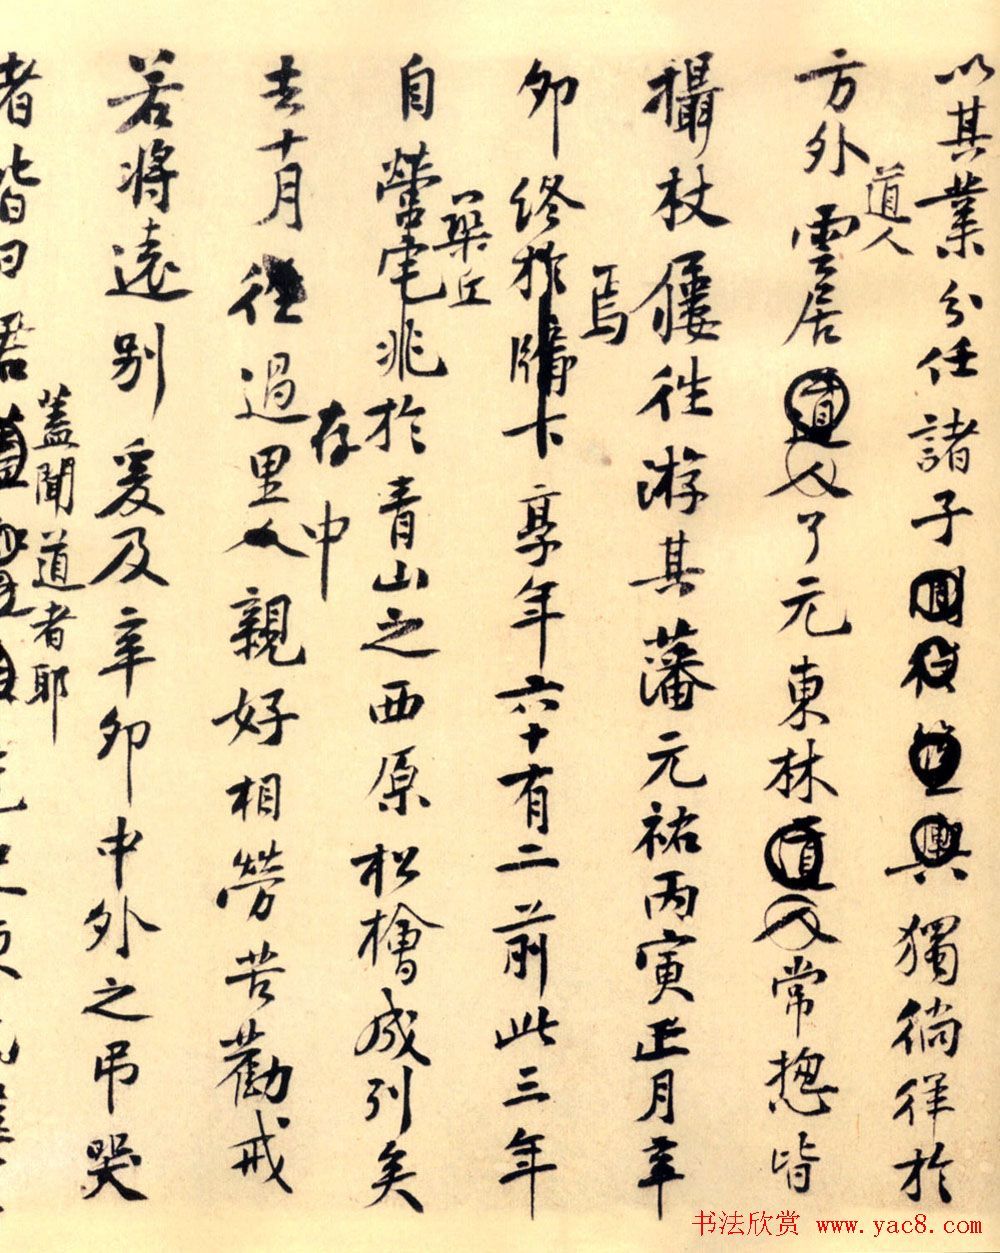 以其業分任諸子獨徜徉於
道人
方外雲居道人了元東林道人常揔皆
攝杖屨徃游其藩元祐丙寅正月辛
焉
卯終於牖下享年六十有二前此三年
築丘
自營宅兆於青山之西原松檜成列矣
存中
去十月徃過里人親好相勞苦勸戒
若將遠别爰及辛卯中外之弔哭
蓋聞道者耶
者皆曰君
书法欣赏 www.yac8.com